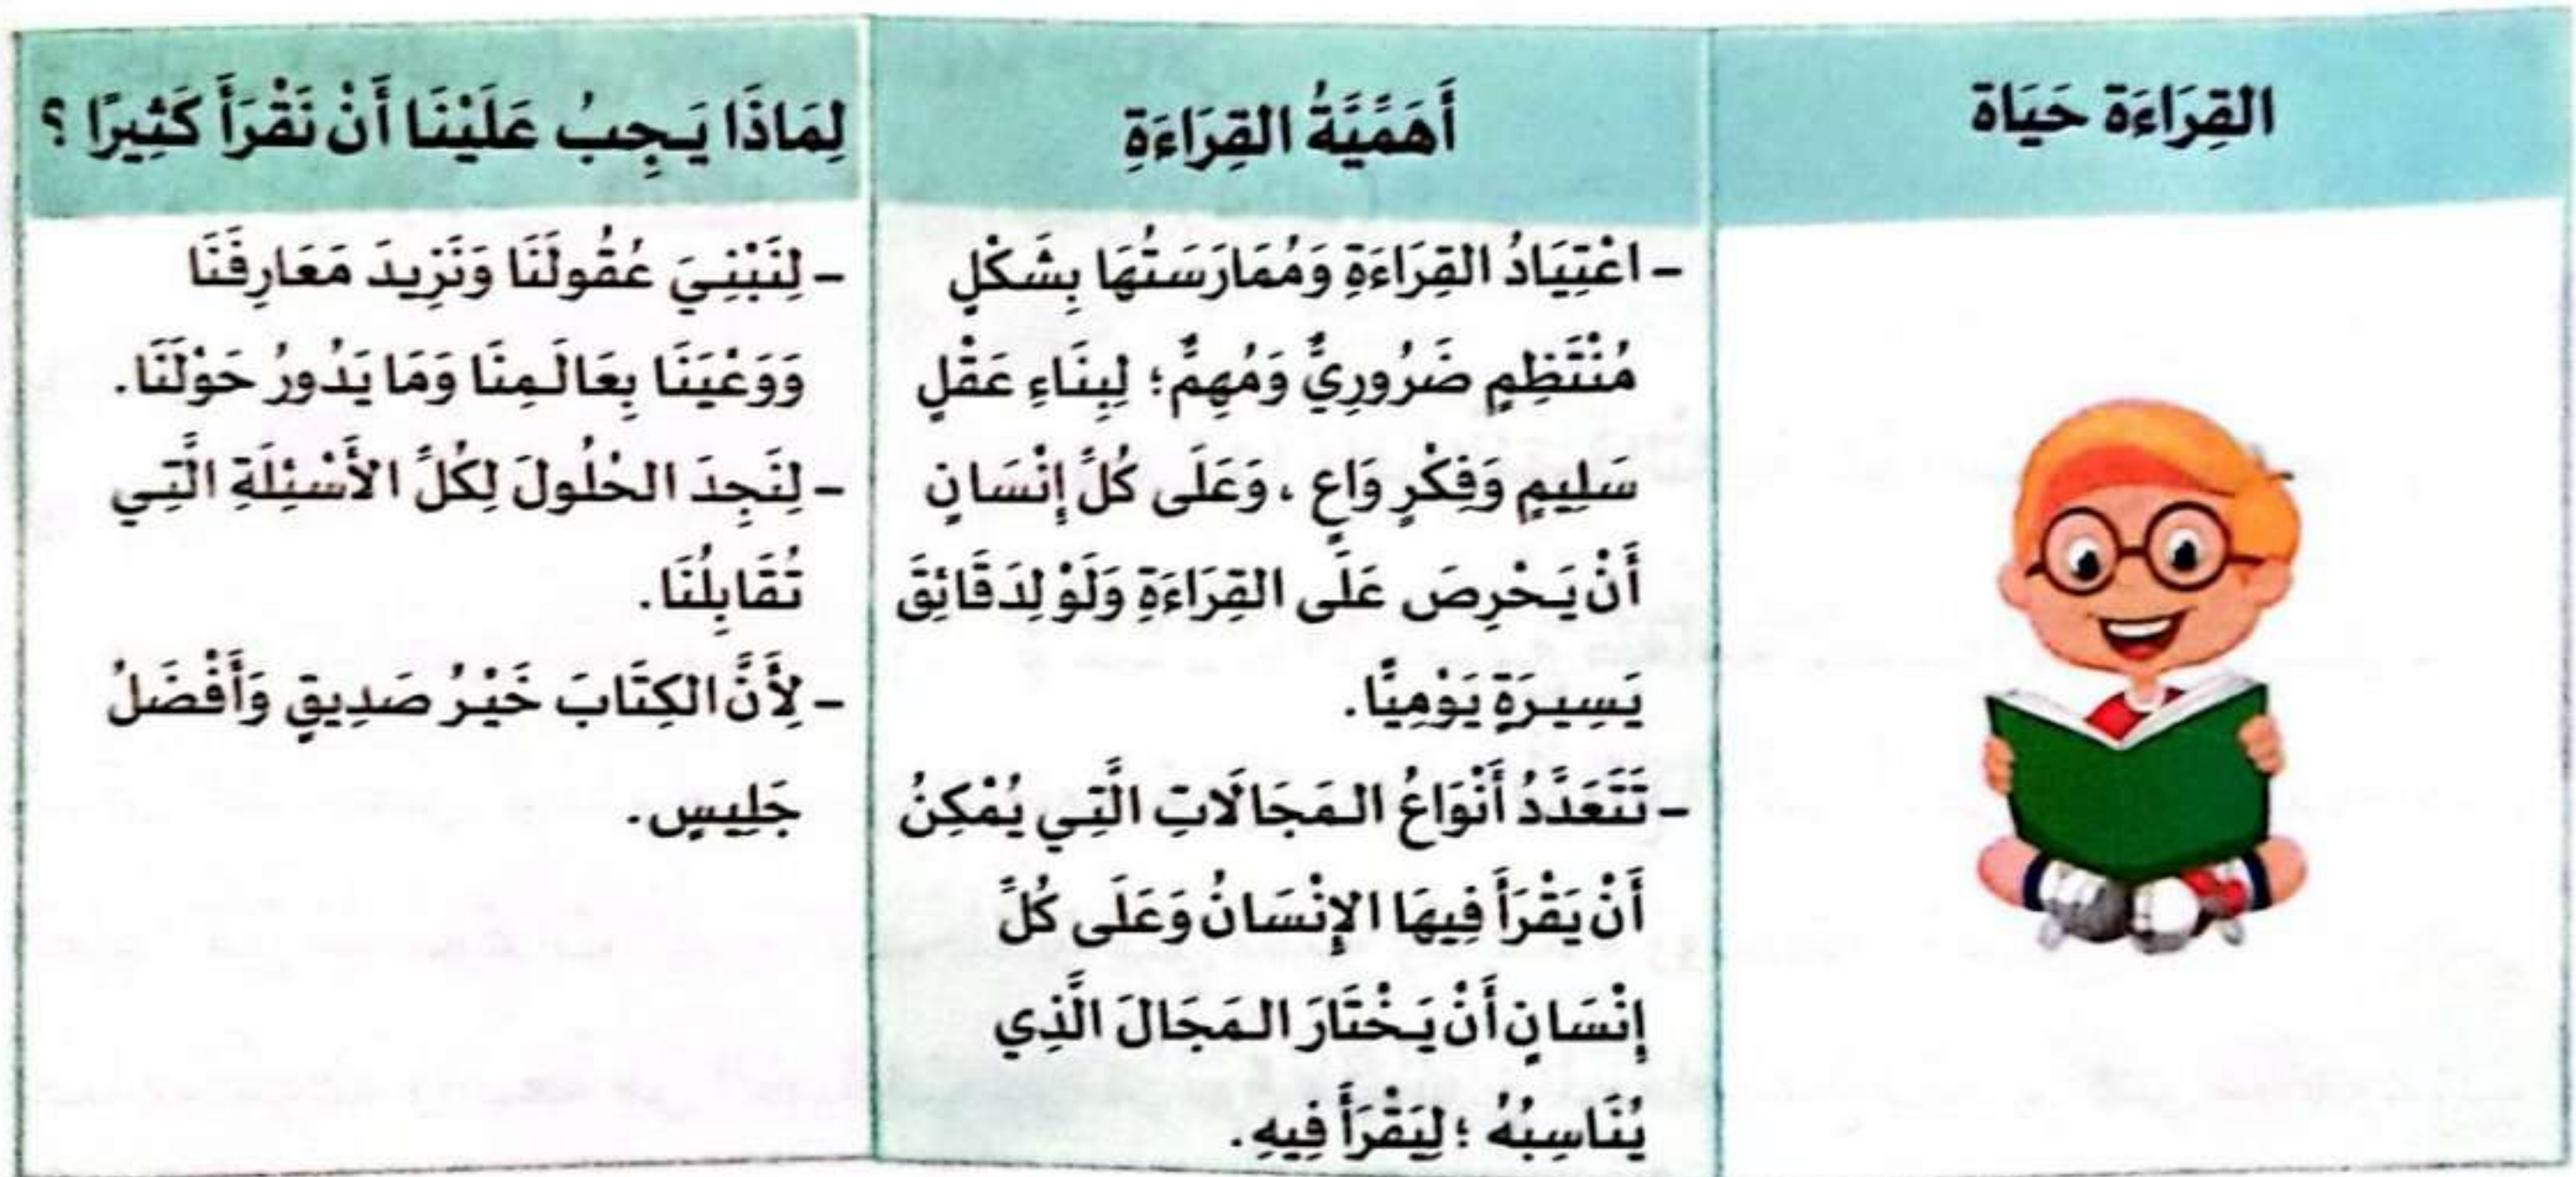 القِرَاءَة حَيَاة
أَهَمِّيَّةُ القِرَاءَةِ
- اعْتِيَادُ القِرَاءَةِ وَمُمَارَسَتُهَا بِشَكْلٍ
مُنْتَظِمٍ ضَرُورِيٌّ وَمُهِمٌّ؛ لِبِنَاءِ عَقْلٍ
سَلِيمٍ وَفِكْرٍ وَاعٍ ، وَعَلَى كُلِّ إِنْسَانٍ
أَنْ يَـحْرِصَ عَلَى القِرَاءَةِ وَلَوْ لِدَقَائِقَ
يَسِيرَةٍ يَوْمِيًّا.
- تَتَعَدَّدُ أَنْوَاعُ الـمَجَالَاتِ الَّتِـي يُمْكِنُ
أَنْ يَقْرَأَ فِيهَا الإِنْسَانُ وَعَلَى كُلِّ
إِنْسَانٍ أَنْ يَـخْتَارَ الـمَجَالَ الَّذِي
يُنَاسِبُهُ ؛ لِيَقْرَأَ فِيهِ.
لِمَاذَا يَـجِبُ عَلَيْنَا أَنْ نَقْرَأَ كَثِيرًا ؟
- لِنَبْنِـيَ عُقُولَنَا وَنَزِيدَ مَعَارِفَنَا
وَوَعْيَنَا بِعَالَـمِنَا وَمَا يَدُورُ حَوْلَنَا.
- لِنَجِدَ الحُلُولَ لِكُلِّ الأَسْئِلَةِ الَّتِـي
تُقَابِلُنَا.
- لِأَنَّ الكِتَابَ خَيْـرُ صَدِيقٍ وَأَفْضَلُ
جَلِيسٍ.